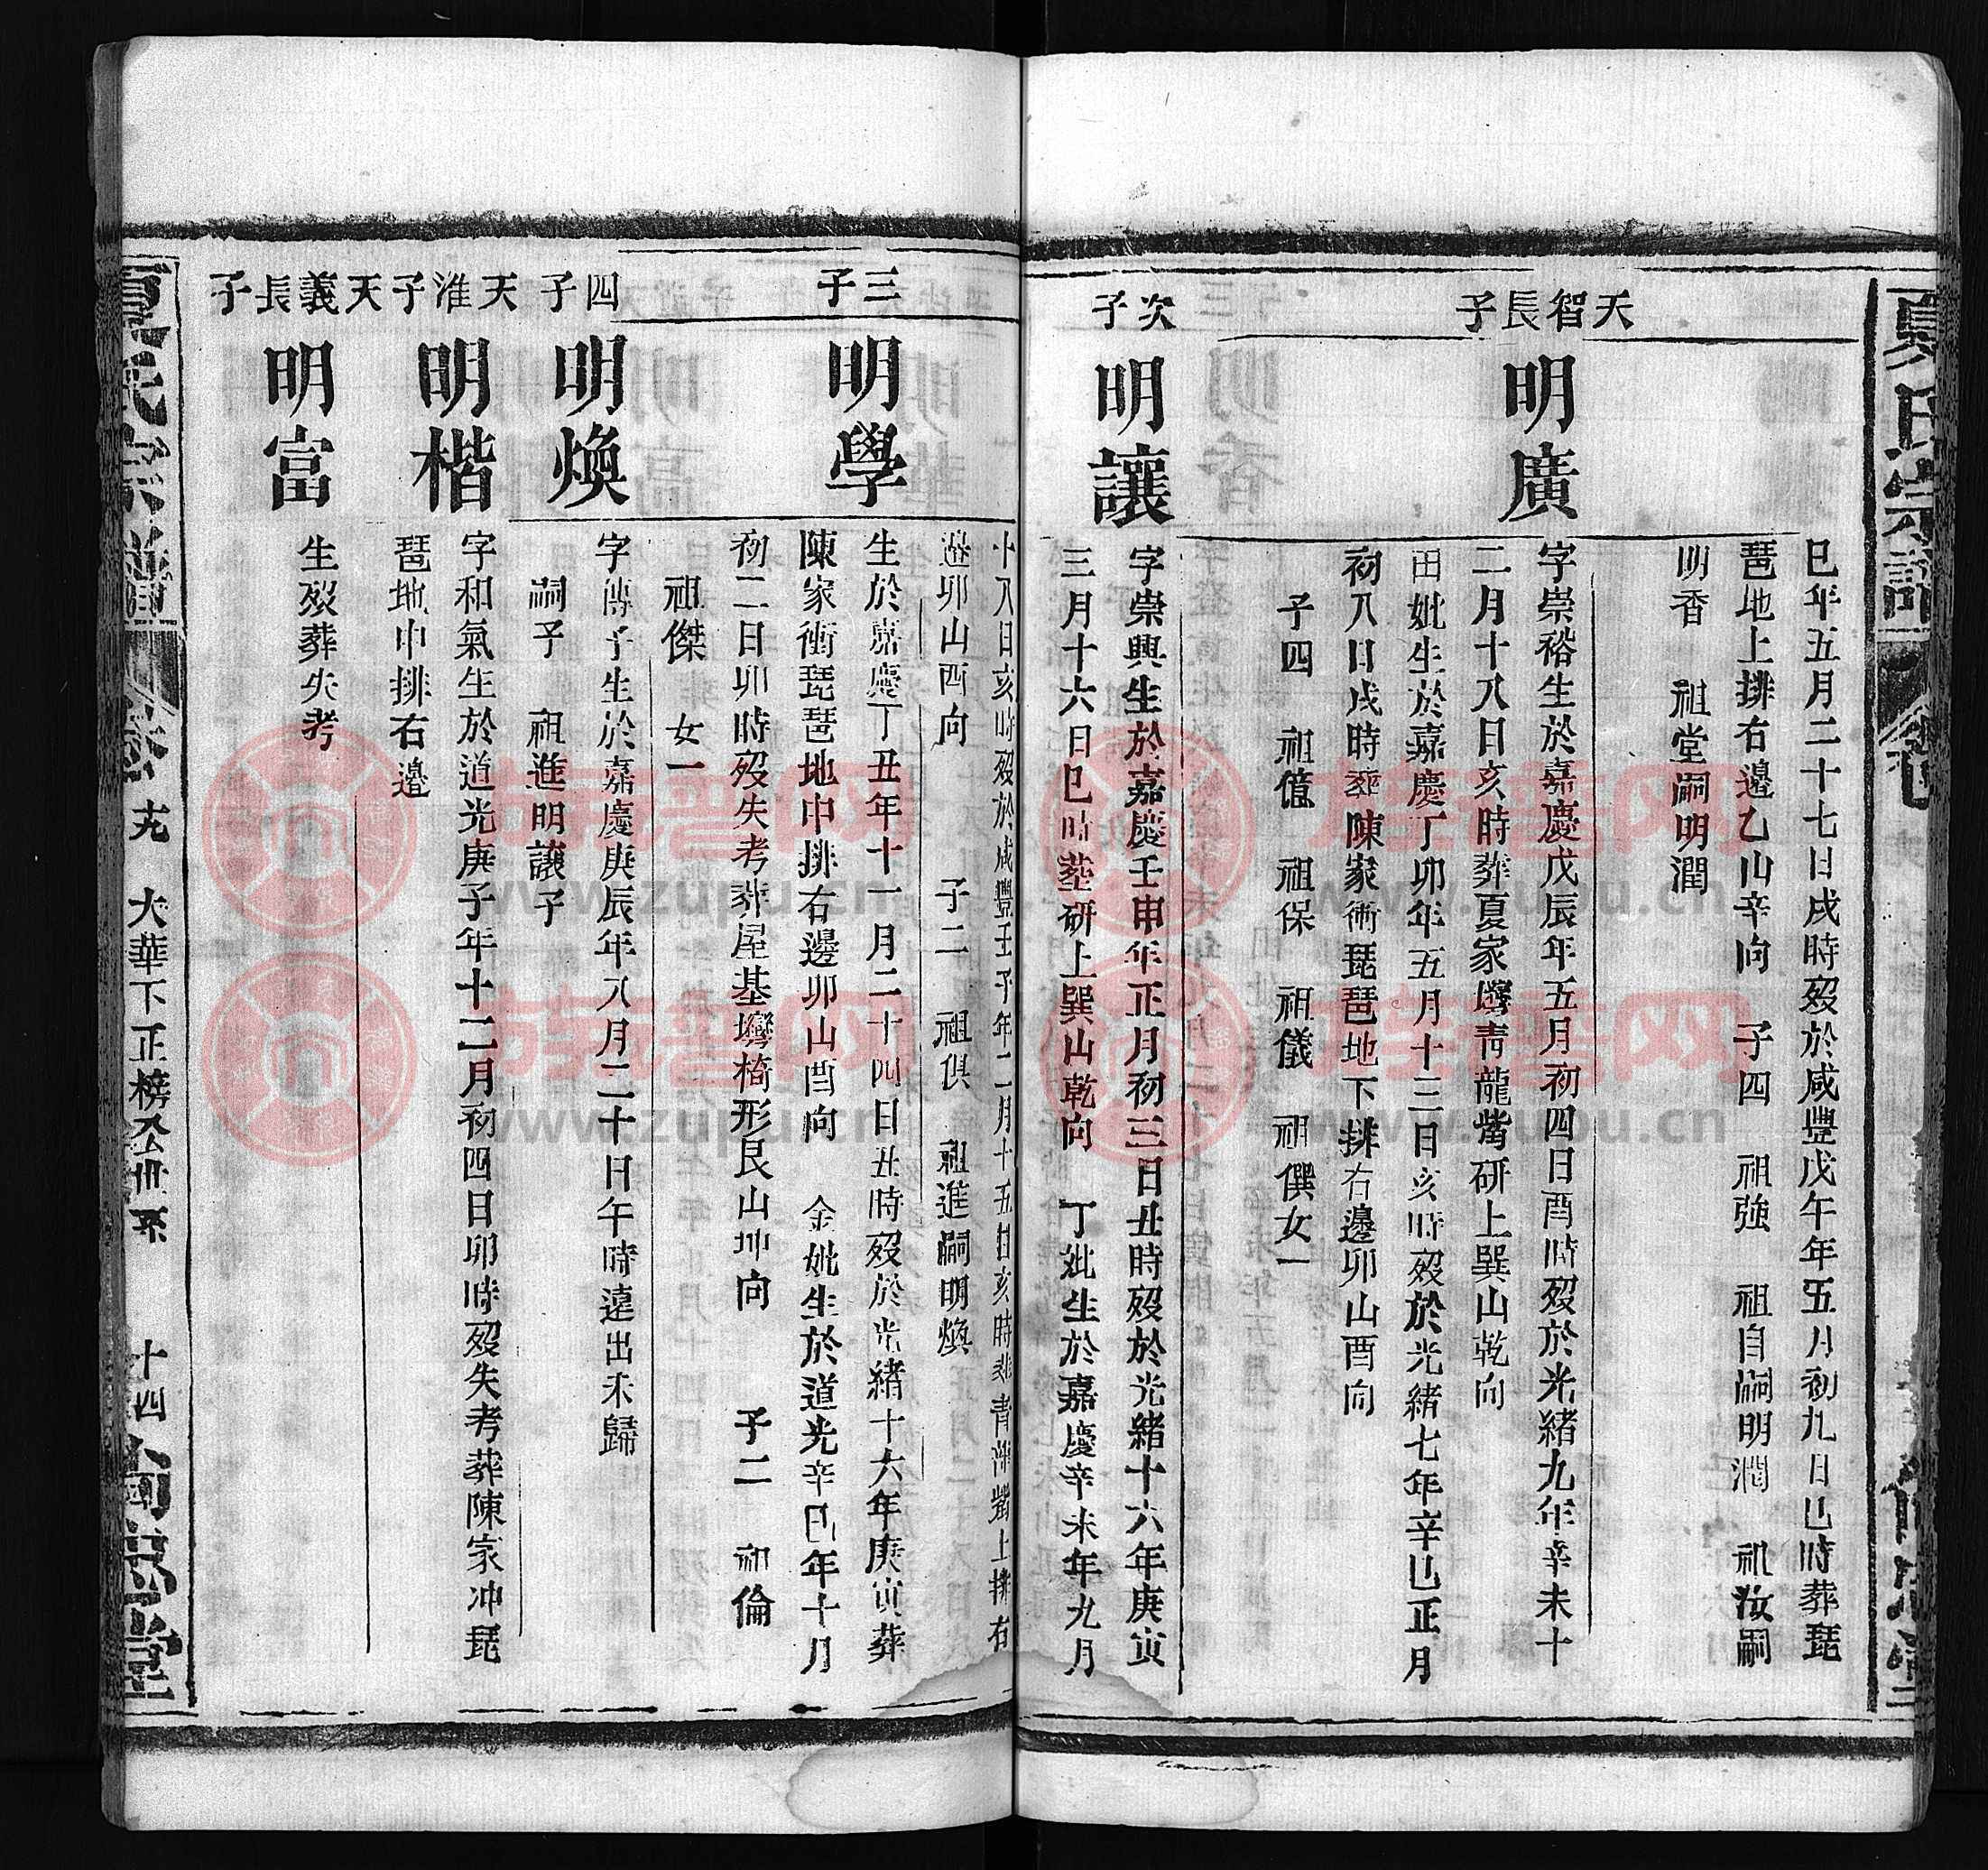 夏氏宗譜
巳年五月二十七日戌時歿於咸豐戊午年五月初九日巳時葬琵
琶地上排右邊乙山辛向 子四 祖強 祖自嗣明潤 祖汝嗣
明香 祖堂嗣明潤
天智長子
明廣
字崇裕生於嘉慶戊辰年五月初四日酉時歿於光緒九年辛未十
二月十八日亥時葬夏家灣青龍嘴研上巽山乾向
田妣生於嘉慶丁卯年五月十三日亥時歿於光緒七年辛巳正月
初八日戌時葬陳家衝琵琶地下排右邊卯山酉向
子四 祖值 祖保 祖儀 祖僎女一
次子
明讓
字崇興生於嘉慶壬申年正月初三日丑時歿於光緒十六年庚寅
三月十六日巳時葬研上巽山乾向 丁妣生於嘉慶辛未年九月
十八日亥時歿於咸豐壬子年二月十五日亥時葬青 嘴上排右
邊卯山酉向 子二 祖俱 祖進嗣明煥
三子
明學
生於嘉慶丁丑年十一月二十四日丑時歿於光緒十六年庚寅葬
陳家衝琵琶地中排右邊卯山酉向 金妣生於道光辛巳年十月
初二日卯時歿失考葬屋基灣椅形艮山坤向 子二 祖倫
祖傑 女一
四子
明煥
字傳予生於嘉慶庚辰年八月二十日午時遠出未歸
嗣子 祖進明讓子
天淮子
明楷
字和氣生於道光庚子年十二月初四日卯時歿失考葬陳家冲琵
琶地中排右邊
天義長子
明富
生歿葬失考
夏氏宗譜
大華下正榜公世系
十四
尚忠堂